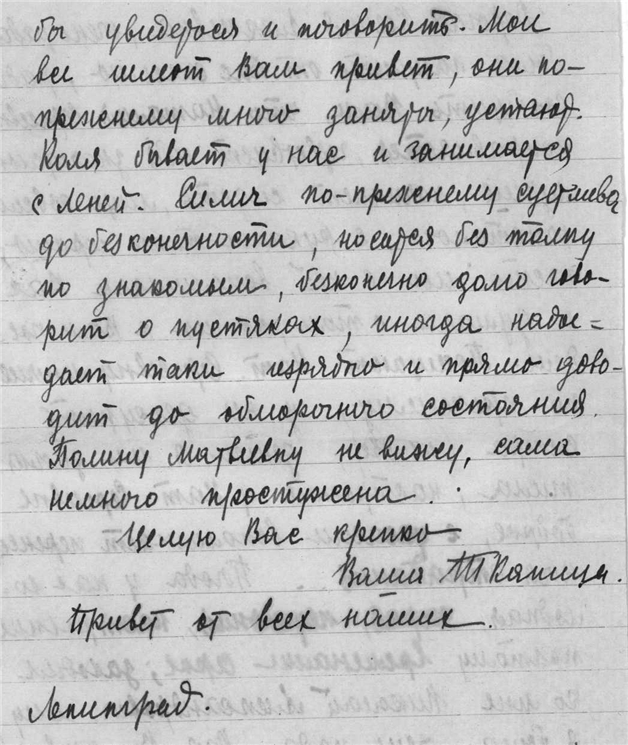 бы увидеться и поговорить. Мои
все шлют Вам привет, они по-
прежнему много заняты, устают.
Коля бывает у нас и занимается
с Леней. Силич по-прежнему суетлива
до бесконечности, носится без толку
по знакомым, безконечно долго гово-
рит о пустяках, иногда надое=
дает таки изрядно и прямо дово-
дит до обморочного состояния.
Полину Матвеевну не вижу, сама
немного простужена.
Целую Вас крепко
Ваша Капица.
Привет от всех наших.
Ленинград.